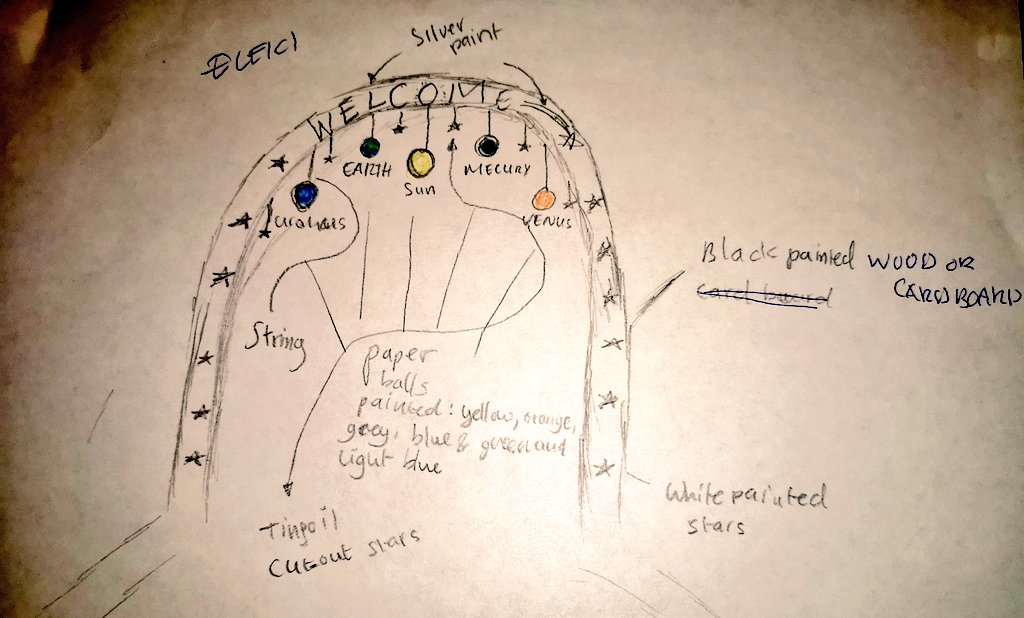 Silver
paint
WELCOME
EARTH
Sun
MECURY
VENUS
String
Black painted WOOD OR
Card board
CARDBOARD
paper
balls
painted: yellow, orange,
grey, blue & green and
light blue
White painted
stars
Tinfoil
cutout stars